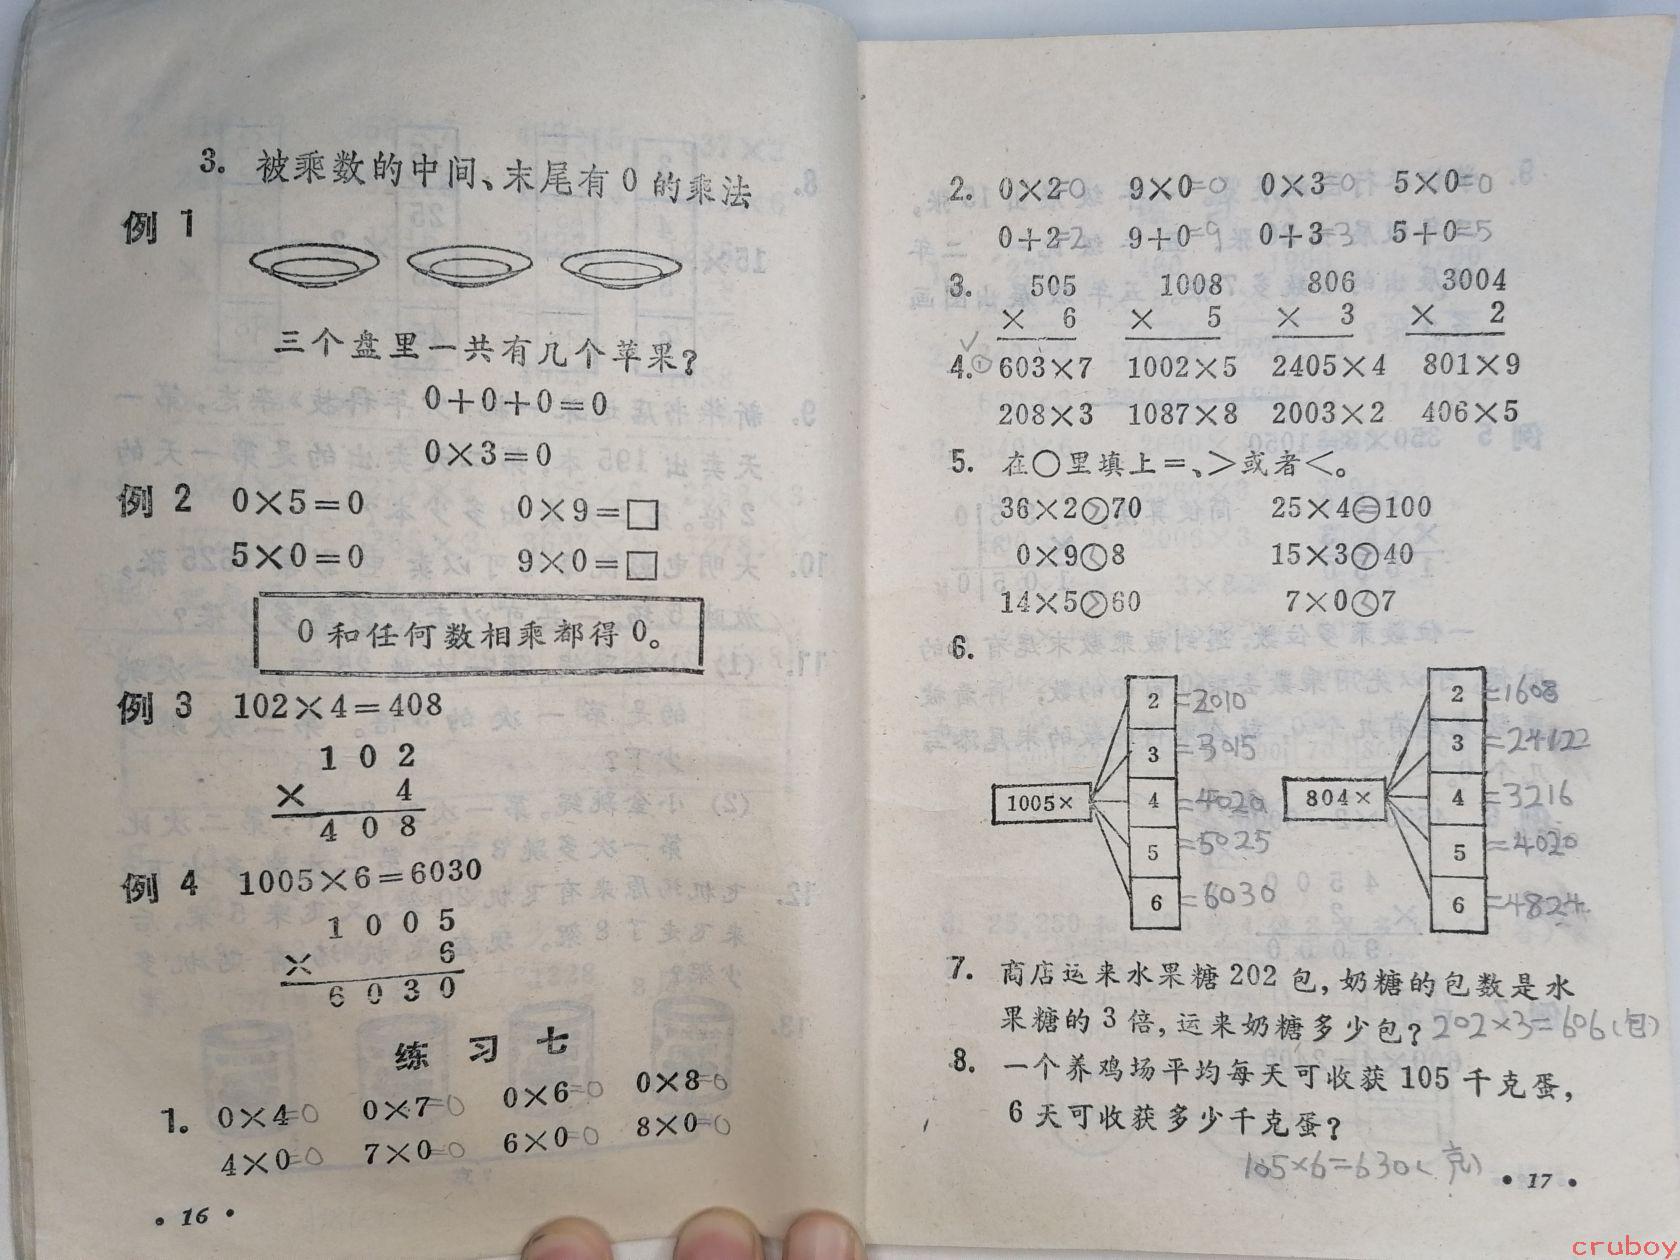 3. 被乘数的中间、末尾有 0 的乘法
例 1
三个盘里一共有几个苹果?
0+0+0=0
0×3=0
例 2 0×5=0 0×9=□
5×0=0 9×0=□
0 和任何数相乘都得 0。
例 3 102×4=408
1 0 2
× 4
4 0 8
例 4 1005×6=6030
1 0 0 5
× 6
6 0 3 0
练 习 七
1. 0×4=0 0×7=0 0×6=0 0×8=0
4×0=0 7×0=0 6×0=0 8×0=0
• 16 •
2. 0×2=0 9×0=0 0×3=0 5×0=0
0+2=2 9+0=9 0+3=3 5+0=5
3. 505 1008 806 3004
× 6 × 5 × 3 × 2
4. ① 603×7 1002×5 2405×4 801×9
208×3 1087×8 2003×2 406×5
5. 在○里填上=、>或者<。
36×2>70 25×4=100
0×9<8 15×3>40
14×5>60 7×0<7
6.
1005×
2 =2010
3 =3015
4 =4020
5 =5025
6 =6030
804×
2 =1608
3
4 =3216
5 =4020
6 =4824
7. 商店运来水果糖 202 包, 奶糖的包数是水
果糖的 3 倍, 运来奶糖多少包? 202×3=606(包)
8. 一个养鸡场平均每天可收获 105 千克蛋,
6 天可收获多少千克蛋?
105×6=630(克)
• 17 •
cruboy